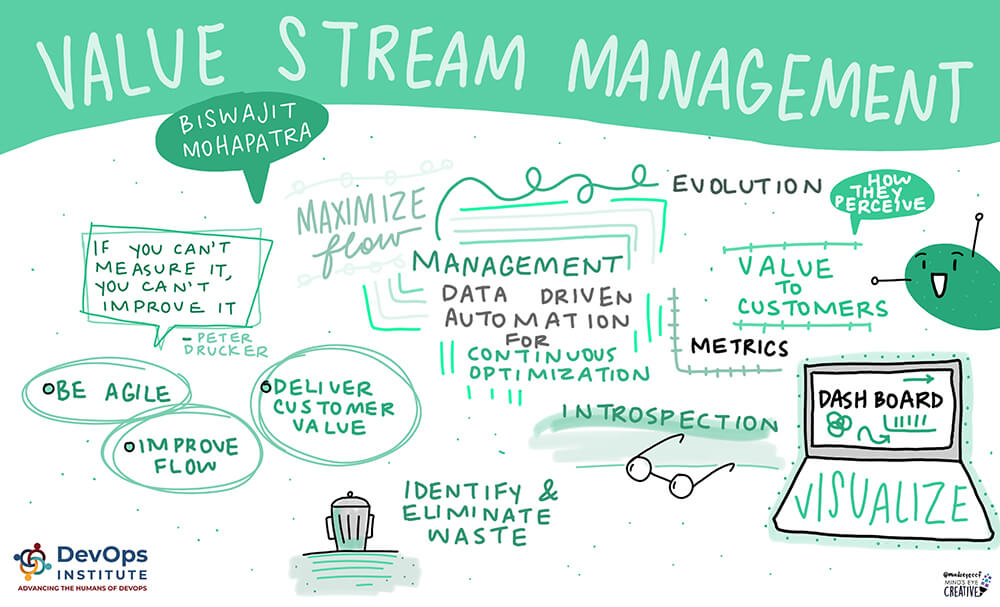 VALUE STREAM MANAGEMENT
BISWAJIT
MOHAPATRA
MAXIMIZE
flow
EVOLUTION
HOW
THEY
PERCEIVE
IF YOU CAN'T
MEASURE IT,
YOU CAN'T
IMPROVE IT
- PETER
DRUCKER
MANAGEMENT
DATA DRIVEN
AUTOMATION
FOR
CONTINUOUS
OPTIMIZATION
VALUE
TO
CUSTOMERS
METRICS
BE AGILE
IMPROVE
FLOW
DELIVER
CUSTOMER
VALUE
INTROSPECTION
DASHBOARD
VISUALIZE
IDENTIFY &
ELIMINATE
WASTE
DevOps
INSTITUTE
ADVANCING THE HUMANS OF DEVOPS
MIND'S EYE
CREATIVE